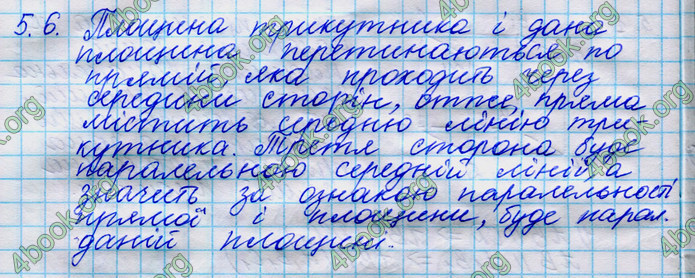 5.6. Площина трикутника і дана
площина перетинаються по
прямій яка проходить через
середини сторін, отже, пряма
містить середню лінію три-
кутника. Третя сторона буде
паралельною середній лінії а
значить за ознакою паралельності
прямої і площини, буде парал.
даній площини.
4book.org
4book.org
4book.org
4book.org
4book.org
4book.org
4book.org